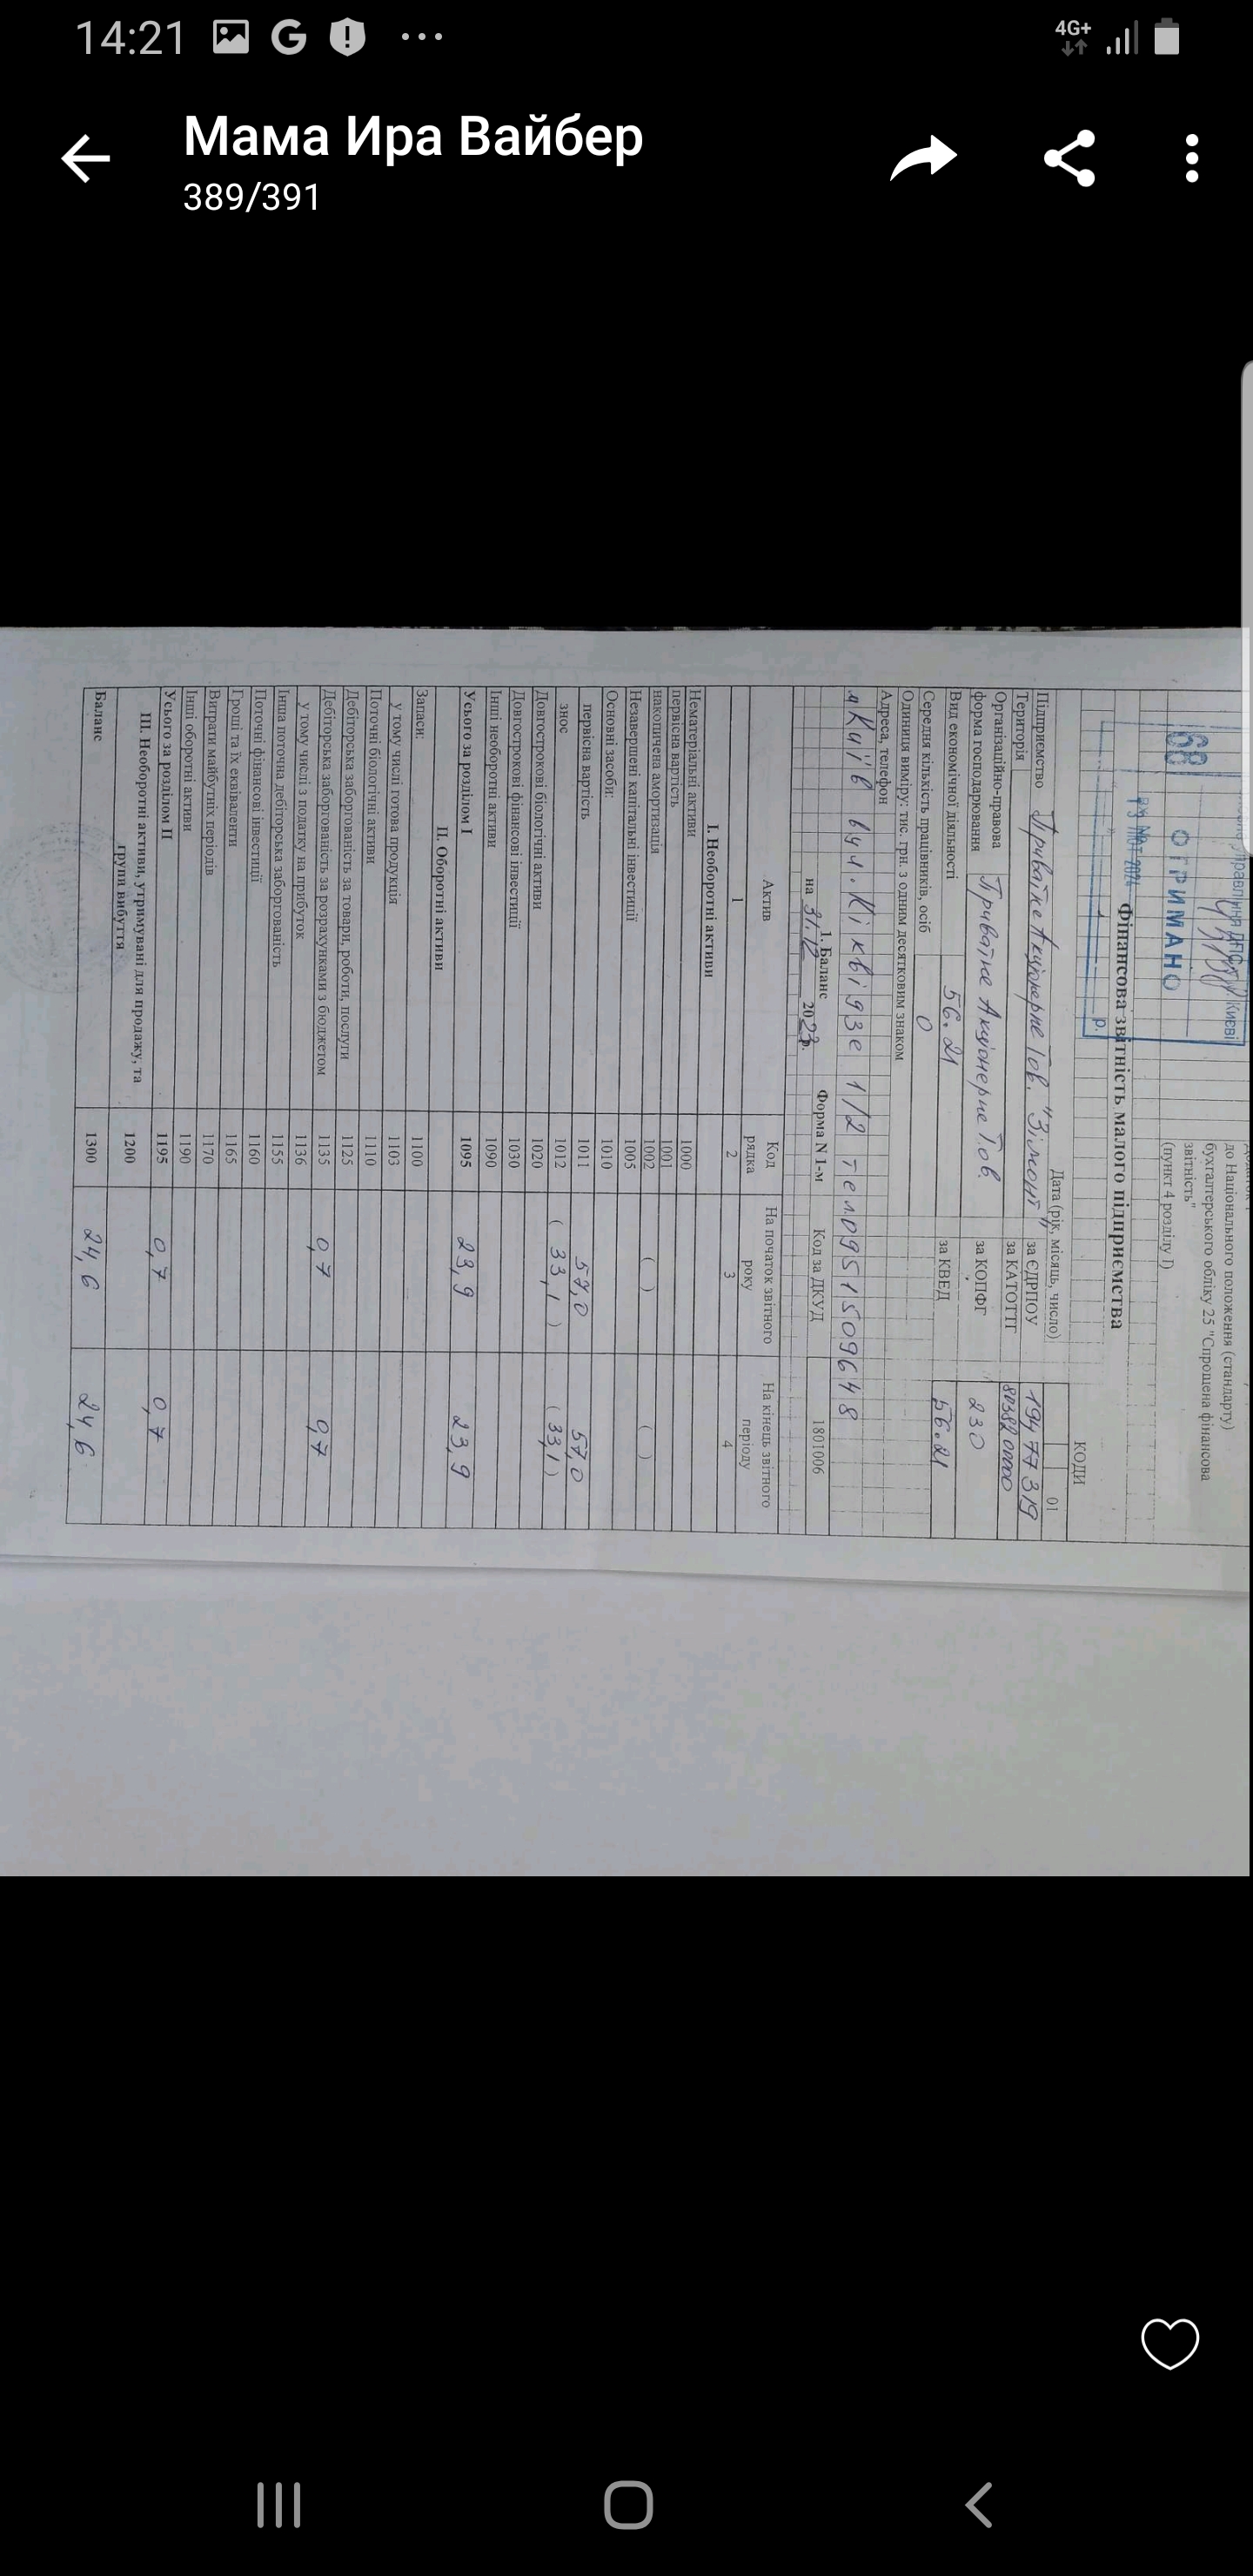 14:21
4G+
Мама Ира Вайбер
389/391
до Національного положення (стандарту)
бухгалтерського обліку 25 "Спрощена фінансова
звітність"
(пункт 4 розділу I)
Управління ДПС у Києві
68 ОТРИМАНО
13 ЛЮТ 2024
р.
Фінансова звітність малого підприємства
КОДИ
Дата (рік, місяць, число) 01
Підприємство Приватне Акціонерне Тов. "Зімонт" за ЄДРПОУ 19477319
Територія за КАТОТТГ 8038200000
Організаційно-правова
форма господарювання Приватне Акціонерне Тов. за КОПФГ 230
Вид економічної діяльності 56.21 за КВЕД 56.21
Середня кількість працівників, осіб 0
Одиниця виміру: тис. грн. з одним десятковим знаком
Адреса, телефон
м Київ вул. Кіквідзе 1/2 тел 0951509648
1. Баланс Форма N 1-м Код за ДКУД 1801006
на 31.12 2023р.
Актив Код рядка На початок звітного року На кінець звітного періоду
1 2 3 4
I. Необоротні активи
Нематеріальні активи 1000
первісна вартість 1001
накопичена амортизація 1002 ( ) ( )
Незавершені капітальні інвестиції 1005
Основні засоби: 1010
первісна вартість 1011 57,0 57,0
знос 1012 ( 33,1 ) ( 33,1 )
Довгострокові біологічні активи 1020
Довгострокові фінансові інвестиції 1030
Інші необоротні активи 1090
Усього за розділом I 1095 23,9 23,9
II. Оборотні активи
Запаси: 1100
у тому числі готова продукція 1103
Поточні біологічні активи 1110
Дебіторська заборгованість за товари, роботи, послуги 1125
Дебіторська заборгованість за розрахунками з бюджетом 1135 0,7 0,7
у тому числі з податку на прибуток 1136
Інша поточна дебіторська заборгованість 1155
Поточні фінансові інвестиції 1160
Гроші та їх еквіваленти 1165
Витрати майбутніх періодів 1170
Інші оборотні активи 1190
Усього за розділом II 1195 0,7 0,7
III. Необоротні активи, утримувані для продажу, та
групи вибуття 1200
Баланс 1300 24,6 24,6